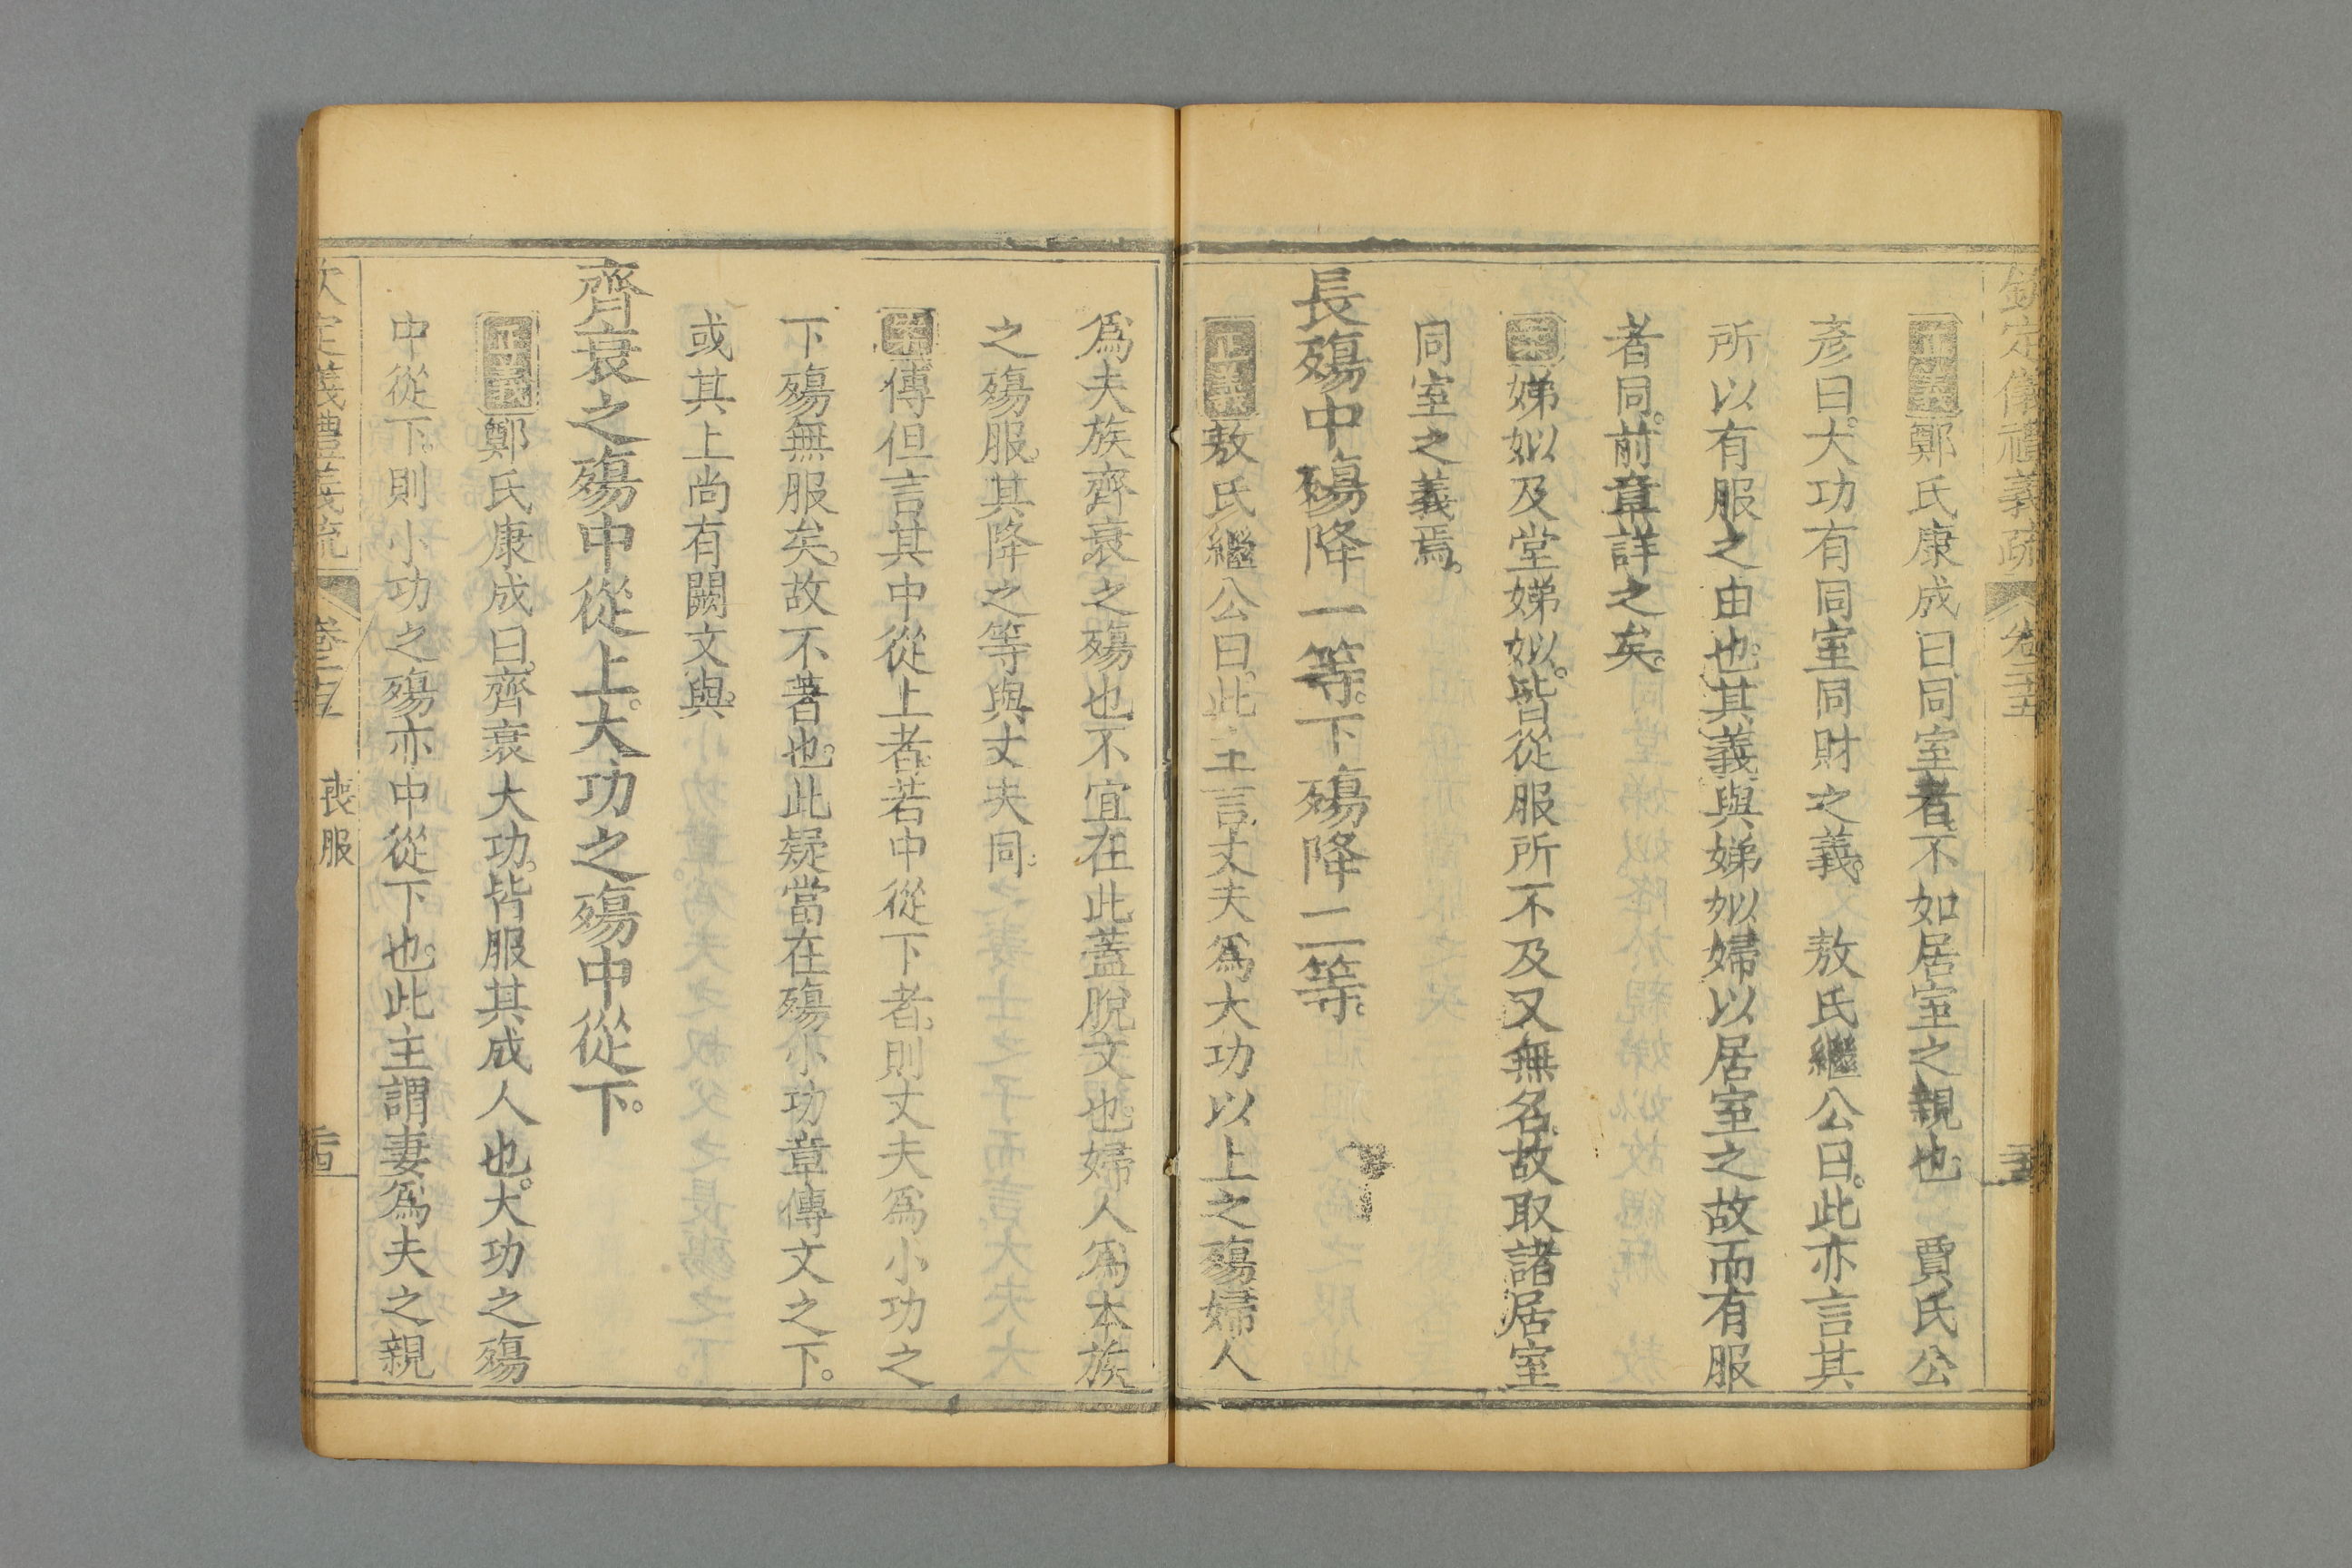 欽定儀禮義疏 卷二十五
正義鄭氏康成曰同室者不如居室之親也　賈氏公
彥曰大功有同室同財之義　敖氏繼公曰此亦言其
所以有服之由也其義與娣姒婦以居室之故而有服
者同前章詳之矣
案娣姒及堂娣姒皆從服所不及又無名故取諸居室
同室之義焉
長殤中殤降一等下殤降二等
正義敖氏繼公曰此主言丈夫爲大功以上之殤婦人
爲夫族齊衰之殤也不宜在此蓋脫文也婦人爲本族
之殤服其降之等與丈夫同
案傳但言其中從上者若中從下者則丈夫爲小功之
下殤無服矣故不著也此疑當在殤小功章傳文之下
或其上尚有闕文與
齊衰之殤中從上大功之殤中從下
正義鄭氏康成曰齊衰大功皆服其成人也大功之殤
中從下則小功之殤亦中從下也此主謂妻爲夫之親
欽定義禮義疏 卷二十五 喪服